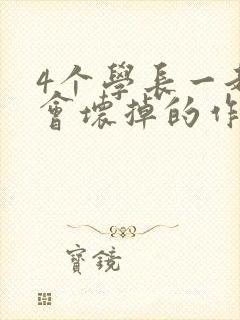 4个學長一
會壞掉的作
寶鏡